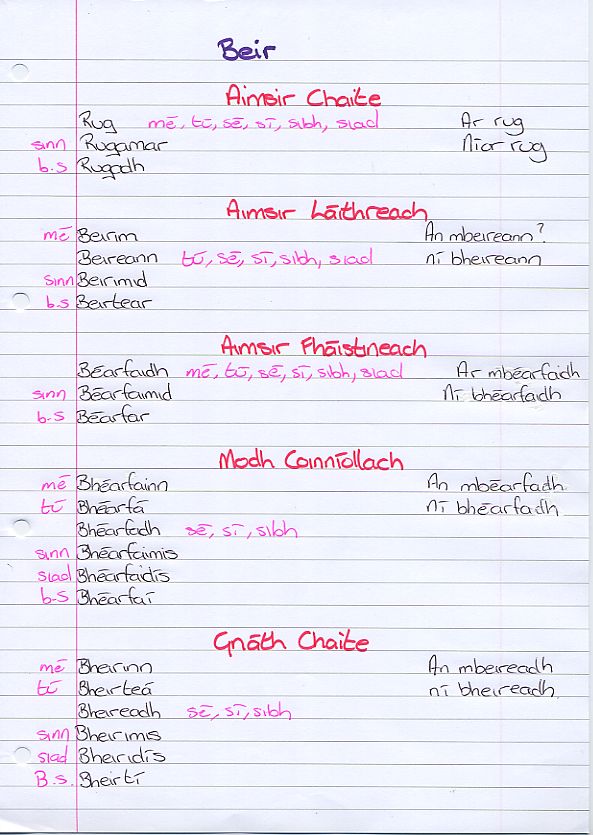 Beir
Aimsir Chaite
Rug mé, tú, sé, sí, sibh, siad Ar rug
sinn Rugamar Níor rug
b.s Rugadh
Aimsir Láithreach
mé Beirim An mbeireann?
Beireann tú, sé, sí, sibh, siad ní bheireann
sinn Beirimid
b.s Beirtear
Aimsir Fháistineach
Béarfaidh mé, tú, sé, sí, sibh, siad Ar mbéarfaidh
sinn Béarfaimid Ní bhéarfaidh
b-s Béarfar
Modh Coinníollach
mé Bhéarfainn An mbéarfadh
tú Bhéarfá ní bhéarfadh
Bhéarfadh sé, sí, sibh
sinn Bhéarfaimis
siad Bhéarfaidís
b-s Bhéarfaí
Gnáth Chaite
mé Bheirinn An mbeireadh
tú Bheirteá ní bheireadh.
Bheireadh sé, sí, sibh
sinn Bheirimis
siad Bheiridís
B.s. Bheirtí